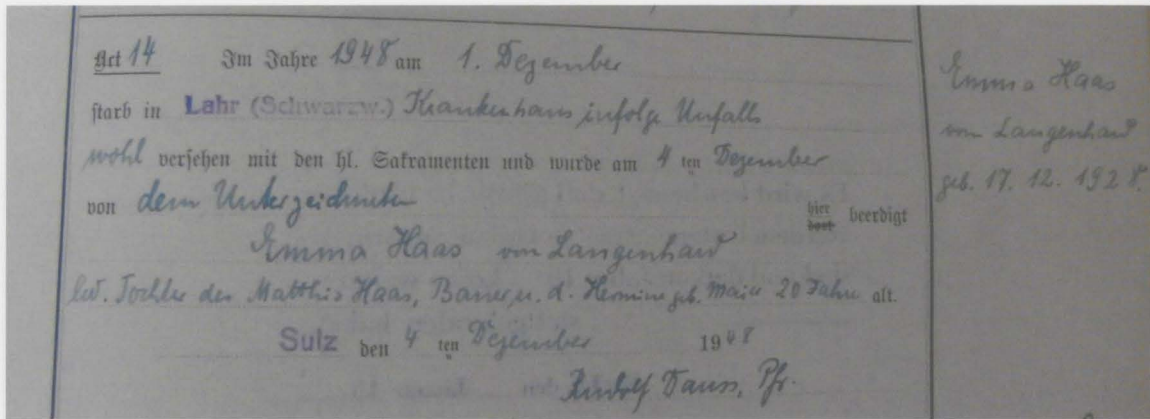 Act 14 Im Jahre 1948 am 1. Dezember
starb in Lahr (Schwarzw.) Krankenhaus infolge Unfalls
wohl versehen mit den hl. Sakramenten und wurde am 4 ten Dezember
von dem Unterzeichneten hier dort beerdigt
Emma Haas von Langenhard
led. Tochter des Matthis Haas, Bauer u. d. Hermine geb. Maier 20 Jahre alt.
Sulz den 4 ten Dezember 1948
Rudolf Dauss, Pfr.
Emma Haas
von Langenhard
geb. 17. 12. 1928.